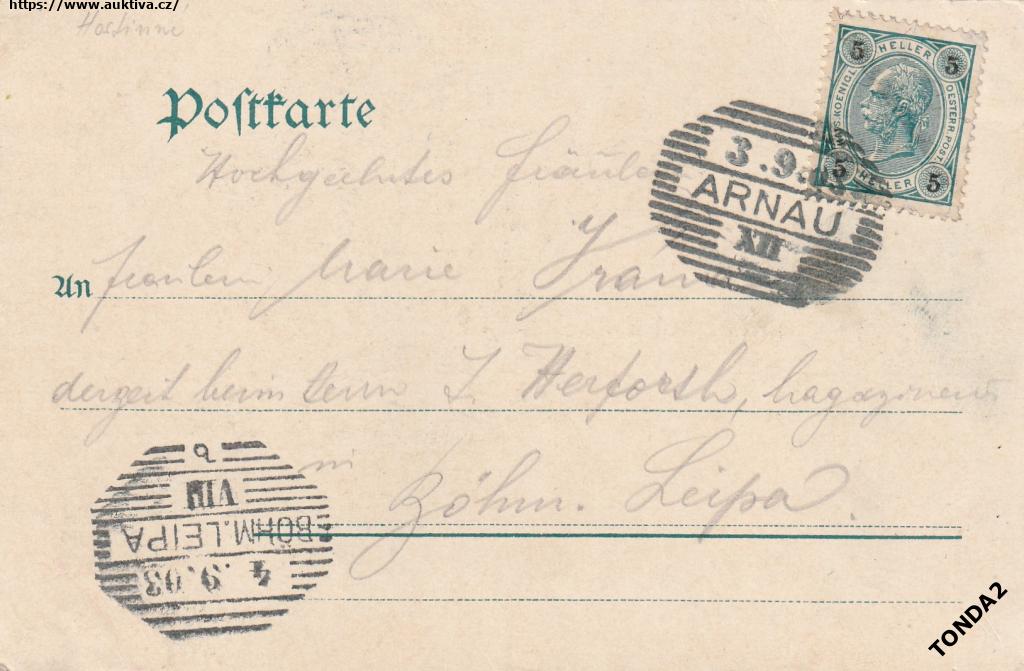 https://www.auktiva.cz/
Hostinne
Postkarte
5 HELLER 5
OESTERR. POST.
5 HELLER 5
3.9.
ARNAU
XII
Fräulein Marie
An
derzeit beim Herrn J. Herforth,
in
Böhm. Leipa.
b
VIII
BÖHM.LEIPA
4.9.03
TONDA2